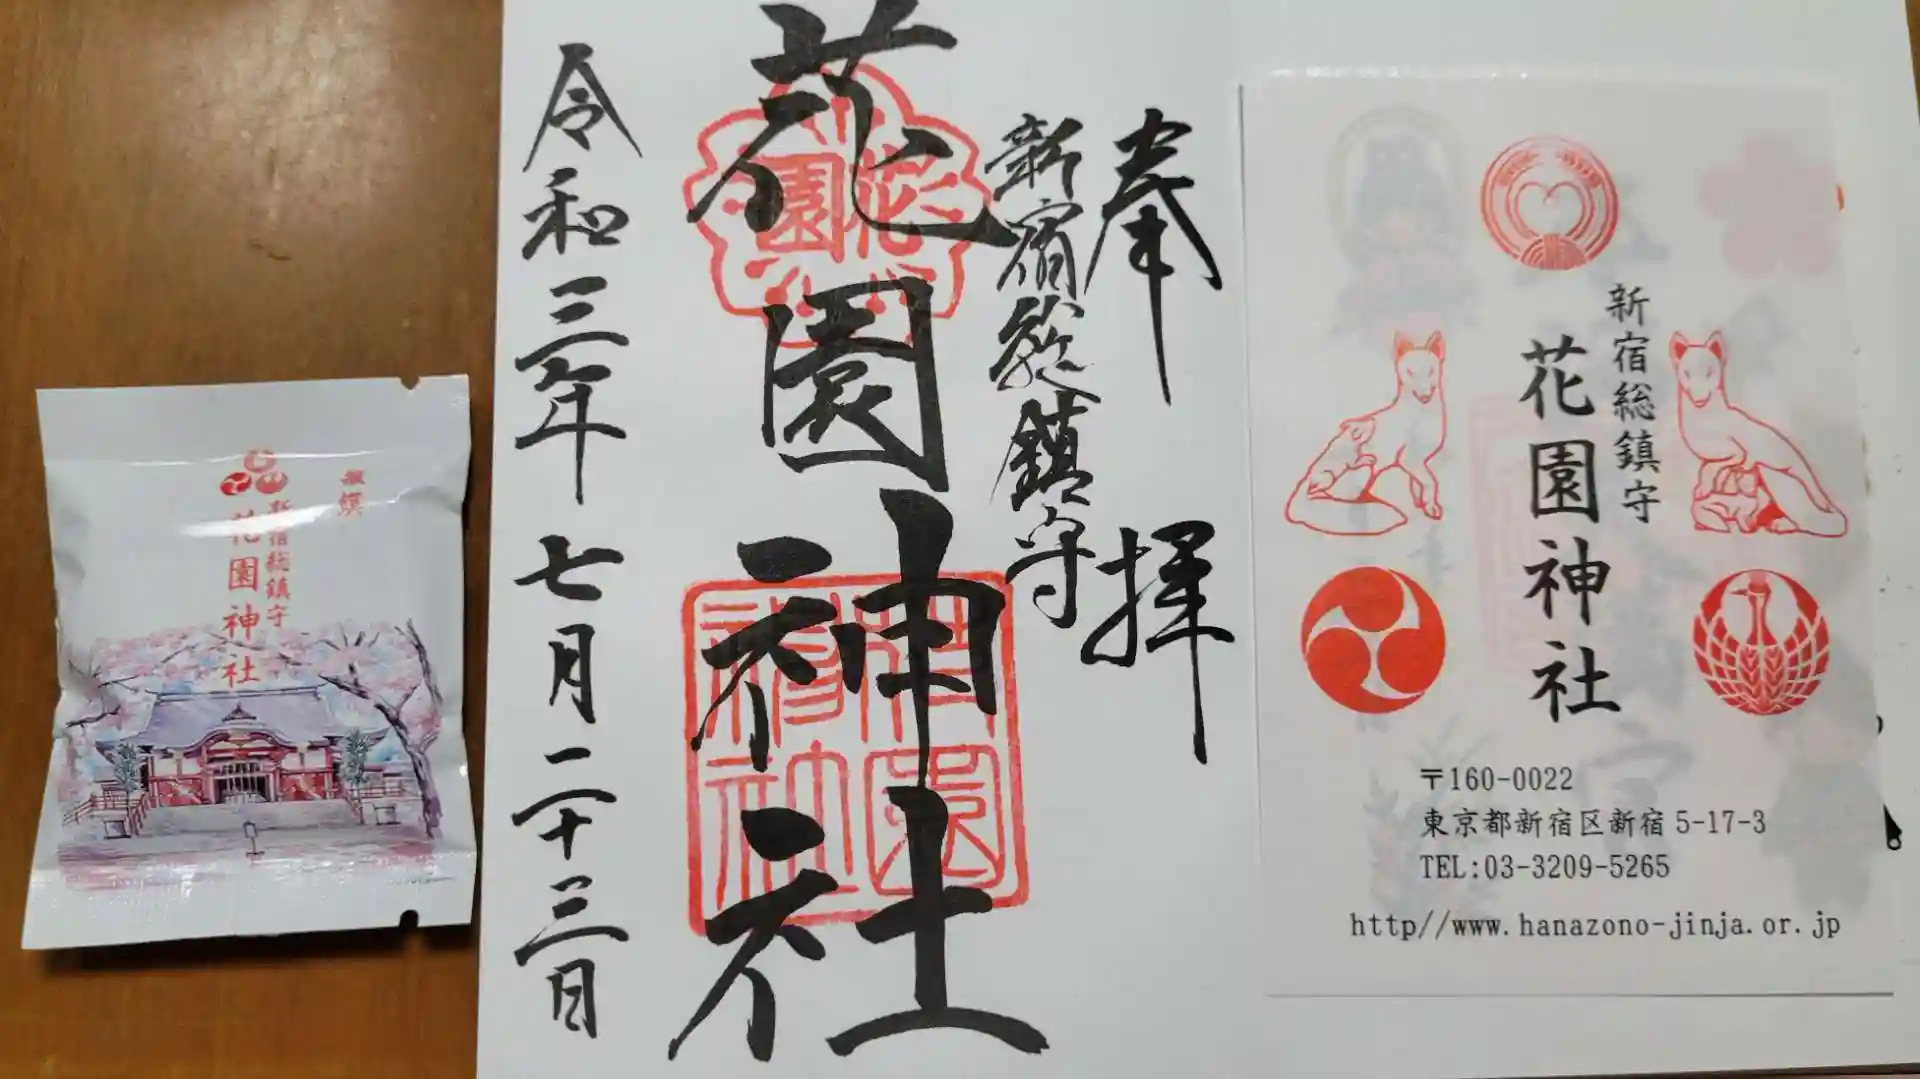 撤饌
新宿総鎮守
花園神社
奉拝
新宿総鎮守
花園神社
令和三年七月二十三日
花園
花園神社
新宿総鎮守
花園神社
〒160-0022
東京都新宿区新宿5-17-3
TEL:03-3209-5265
http//www.hanazono-jinja.or.jp